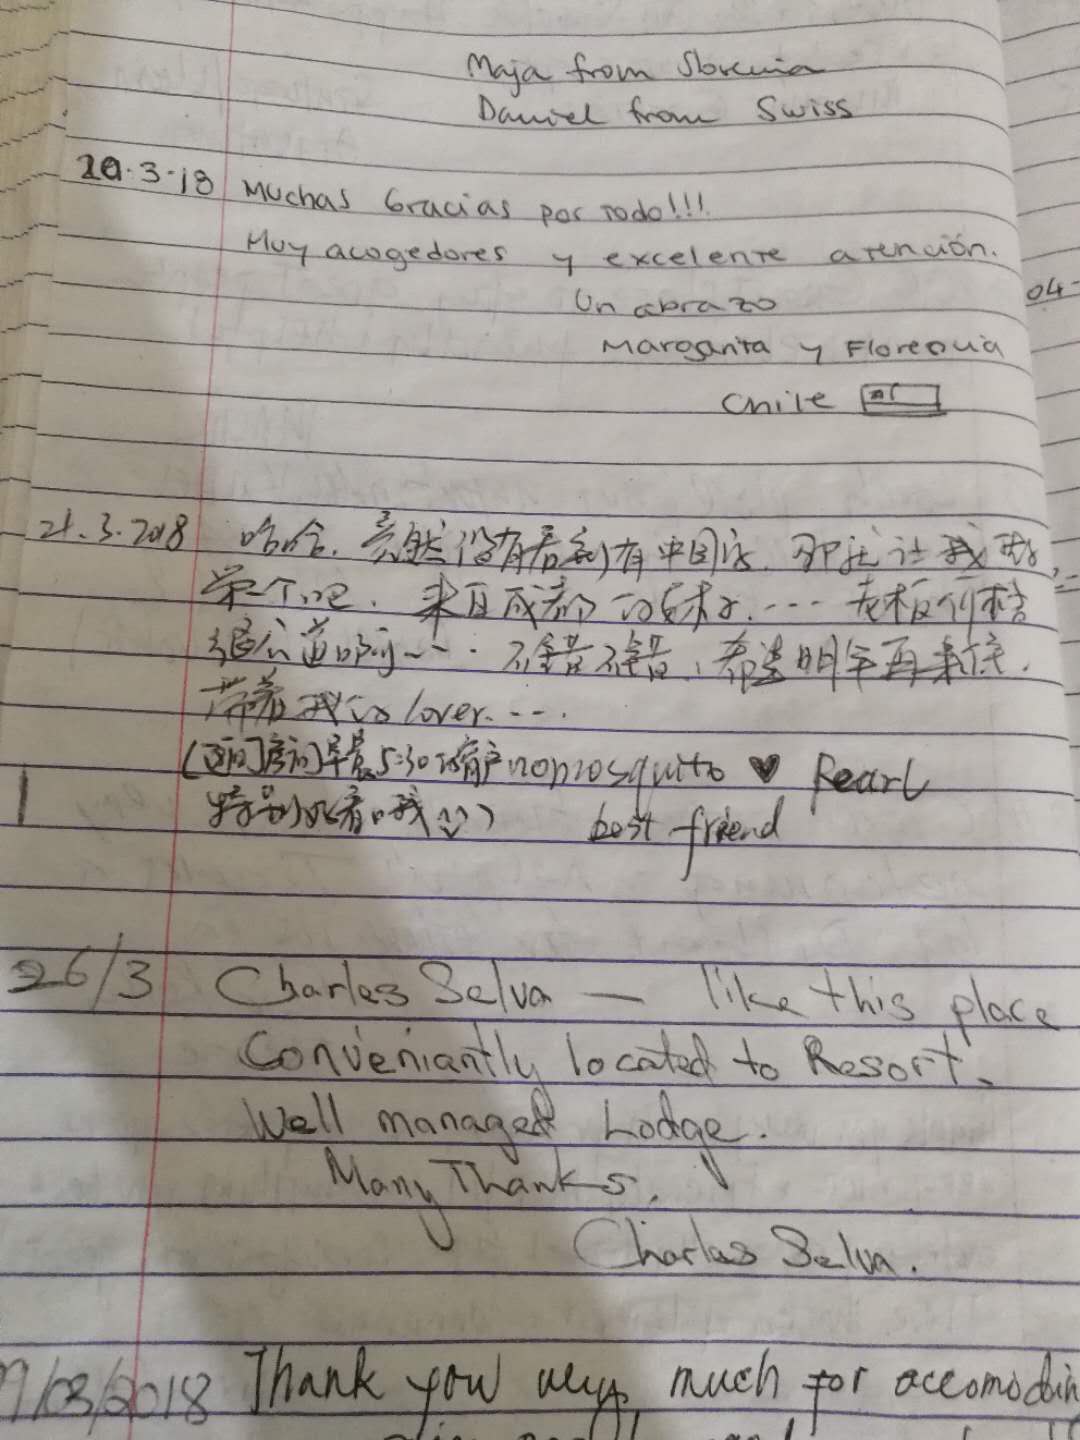 Maja from Slovenia
Daniel from Swiss
20.3.18 Muchas Gracias por todo!!!
Muy acogedores y excelente atención.
Un abrazo
Margarita y Florencia
Chile
04-
21.3.2018 哈哈.竟然没有看到有中国字.那就让我
第一个吧.来自成都的妹子.…老板价格
很公道啊~…不错不错,希望明年再来住.
带着我的lover.…
(这间房间早晨5:30的窗户 no mosquito ♥ Pearl
特别好看哦) best friend
26/3 Charles Selva — like this place
Conveniantly located to Resort.
Well managed Lodge.
Many Thanks.
Charles Selva.
9/03/2018 Thank you very much for accomodin